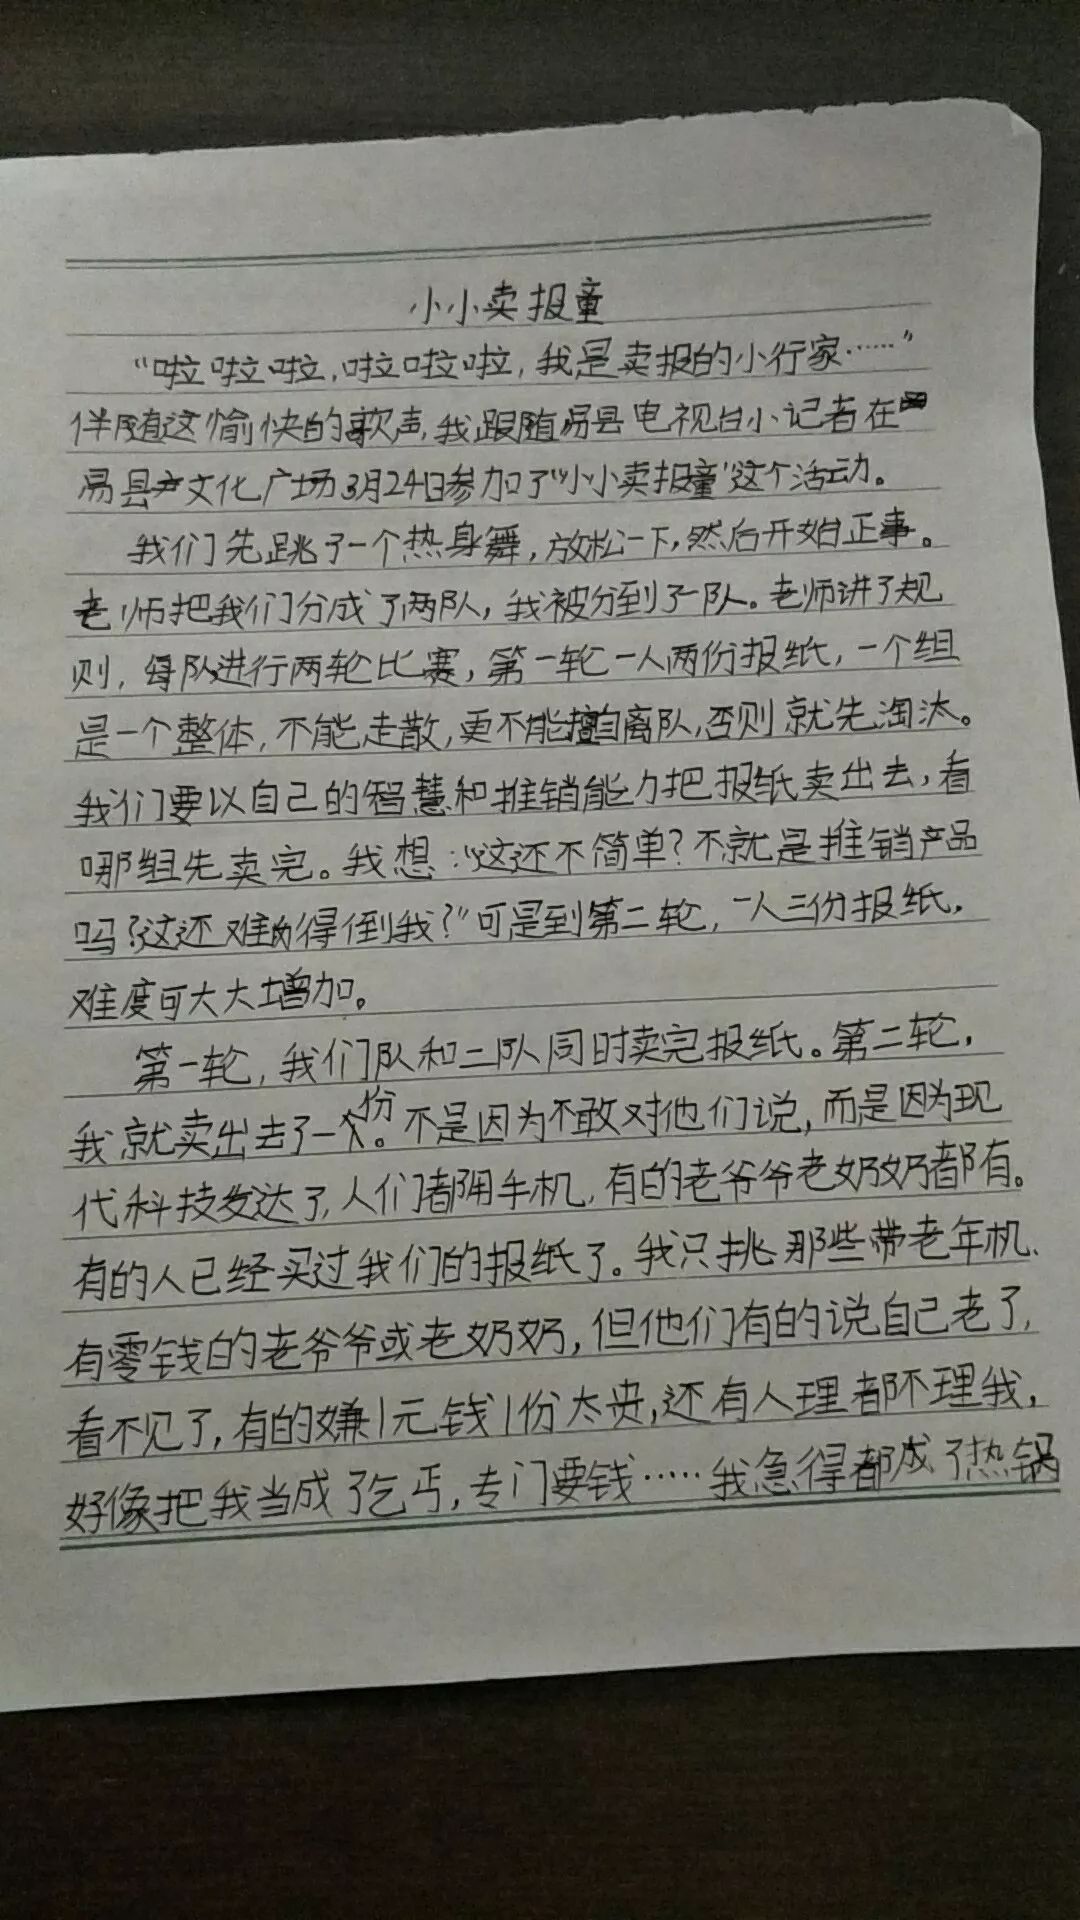 小小卖报童
“啦啦啦,啦啦啦,我是卖报的小行家……”
伴随这愉快的歌声,我跟随易县电视台小记者在
易县文化广场3月24日参加了“小小卖报童”这个活动。
我们先跳了一个热身舞,放松一下,然后开始正事。
老师把我们分成了两队,我被分到了一队。老师讲了规
则,每队进行两轮比赛,第一轮一人两份报纸,一个组
是一个整体,不能走散,更不能擅自离队,否则就先淘汰。
我们要以自己的智慧和推销能力把报纸卖出去,看
哪组先卖完。我想:“这还不简单?不就是推销产品
吗?这还难的得倒我?”可是到第二轮,一人三份报纸,
难度可大大增加。
第一轮,我们队和二队同时卖完报纸。第二轮,
我就卖出去了一份。不是因为不敢对他们说,而是因为现
代科技发达了,人们都用手机,有的老爷爷老奶奶都有。
有的人已经买过我们的报纸了。我只挑那些带老年机、
有零钱的老爷爷或老奶奶,但他们有的说自己老了,
看不见了,有的嫌1元钱1份太贵,还有人理都不理我,
好像把我当成了乞丐,专门要钱……我急得都成了热锅